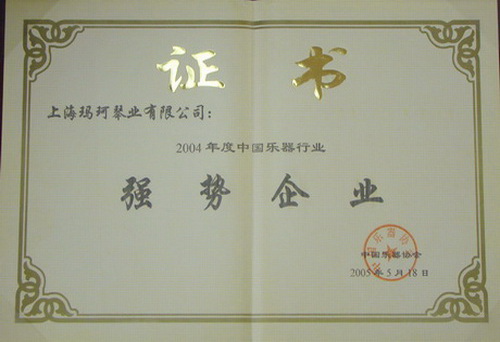 证书
上海玛珂琴业有限公司：
2004年度中国乐器行业
强势企业
中国乐器协会
2005年5月18日